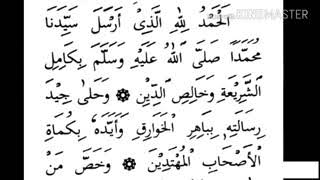 اَلْحَمْدُ لِلّٰهِ الَّذِىْ اَرْسَلَ سَيِّدَنَا
مُحَمَّدًا صَلَّى اللّٰهُ عَلَيْهِ وَسَلَّمَ بِكَامِلِ
الشَّرِيْعَةِ وَخَالِصِ الدِّيْنِ ۞ وَحَلّٰى جِيْدَ
رِسَالَتِهِ بِبَاهِرِ الْخَوَارِقِ وَاَيَّدَهُ بِكُمَاةِ
الْاَصْحَابِ الْمُهْتَدِيْنَ ۞ وَخَصَّ مَنْ
KINEMASTER